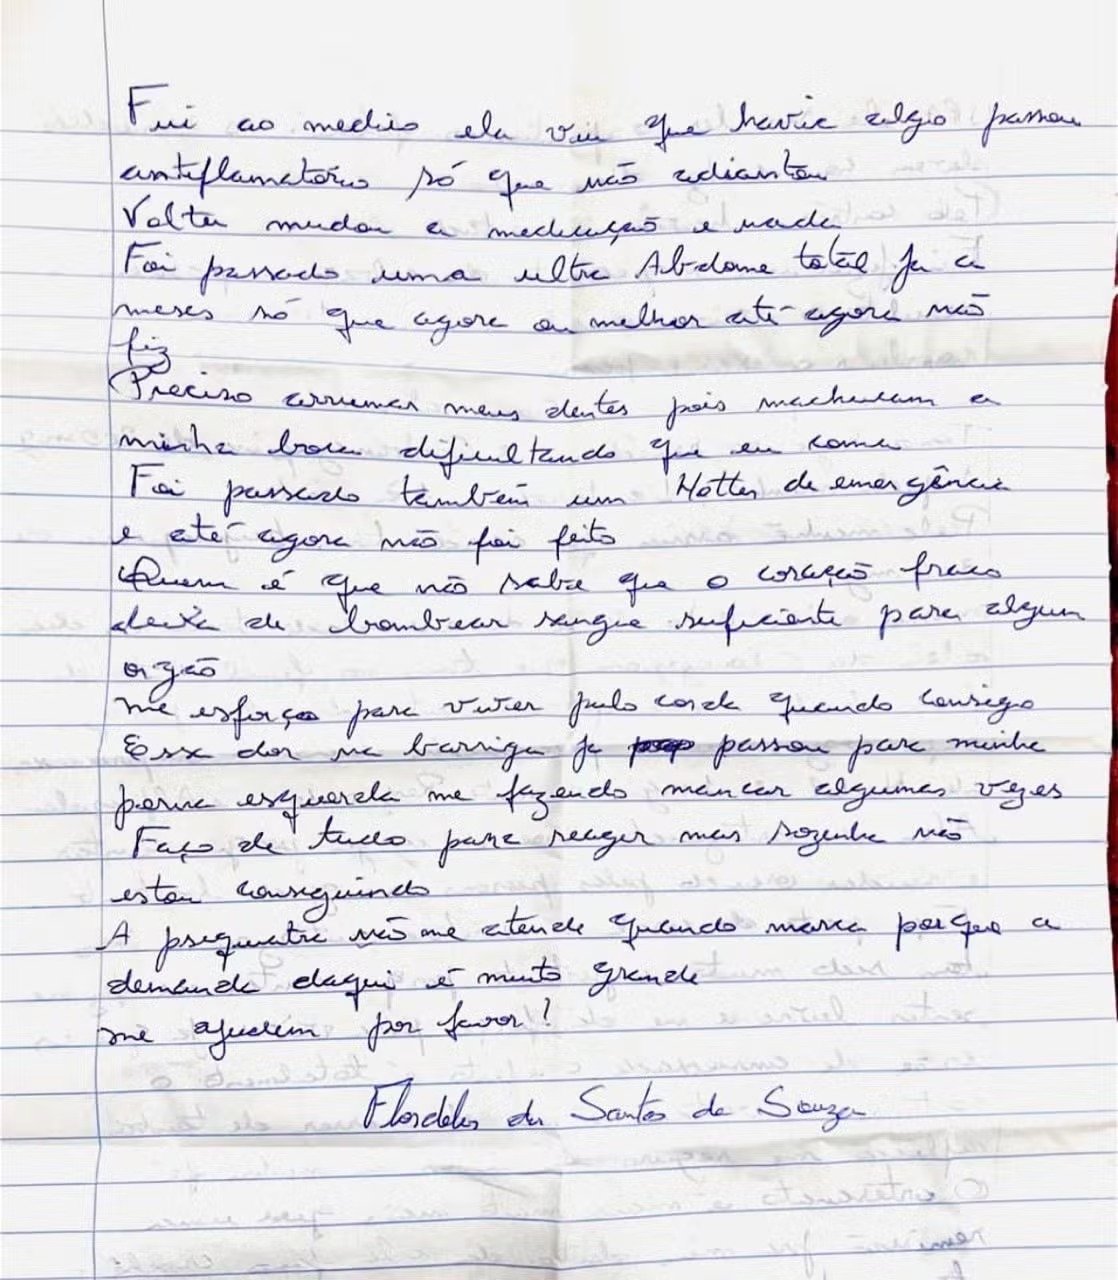 Fui ao medico ela viu que havia algo passou
antiflamatório só que não adiantou
Voltei mudou a medicação e nada
Foi passado uma ultra Abdome total ja a
meses só que agora ou melhor até agora não
fiz
Preciso arrumar meus dentes pois machucam a
minha boca dificultando que eu coma
Foi passado também um Holter de emergência
e até agora não foi feito
Quem é que não sabe que o coração fraco
deixa de bombear sangue suficiente para algum
orgão
me esforço para viver pulo corda quando consigo
Essa dor na barriga ja passou para minha
perna esquerda me fazendo mancar algumas vezes
Faço de tudo para reagir mas sozinha não
estou conseguindo
A psiquiatra não me atende quando marca porque a
demanda daqui é muito grande
me ajudem por favor!
Flordelis dos Santos de Souza